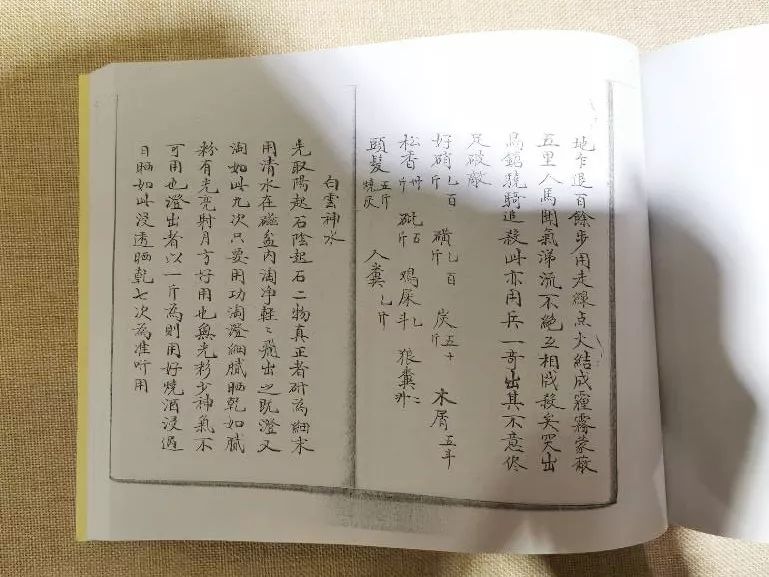 地乍退百餘步用走線点火結成霾霧蒙蔽
五里人馬聞氣涕流不絕互相戕殺矣突出
馬銃驍騎追殺此亦用兵一奇出其不意使
足破敵
好硝乙百斤 磺乙百斤 炭五十 木屑五斗
松香卅斤 砒五斤 鳴屎乙斗 狼糞二升
頭髮五斤燒灰 人糞乙斤
白雲神水
先取陽起石陰起石二物真正者研為細末
用清水在磁盆內淘净輕輕飛出之既澄又
淘如此九次只要用功淘澄細膩晒乾如膩
粉有光亮射月方好用也無光彩少神氣不
可用也澄出者以一斤為則用好燒酒浸過
日晒如此浸透晒乾七次為准听用